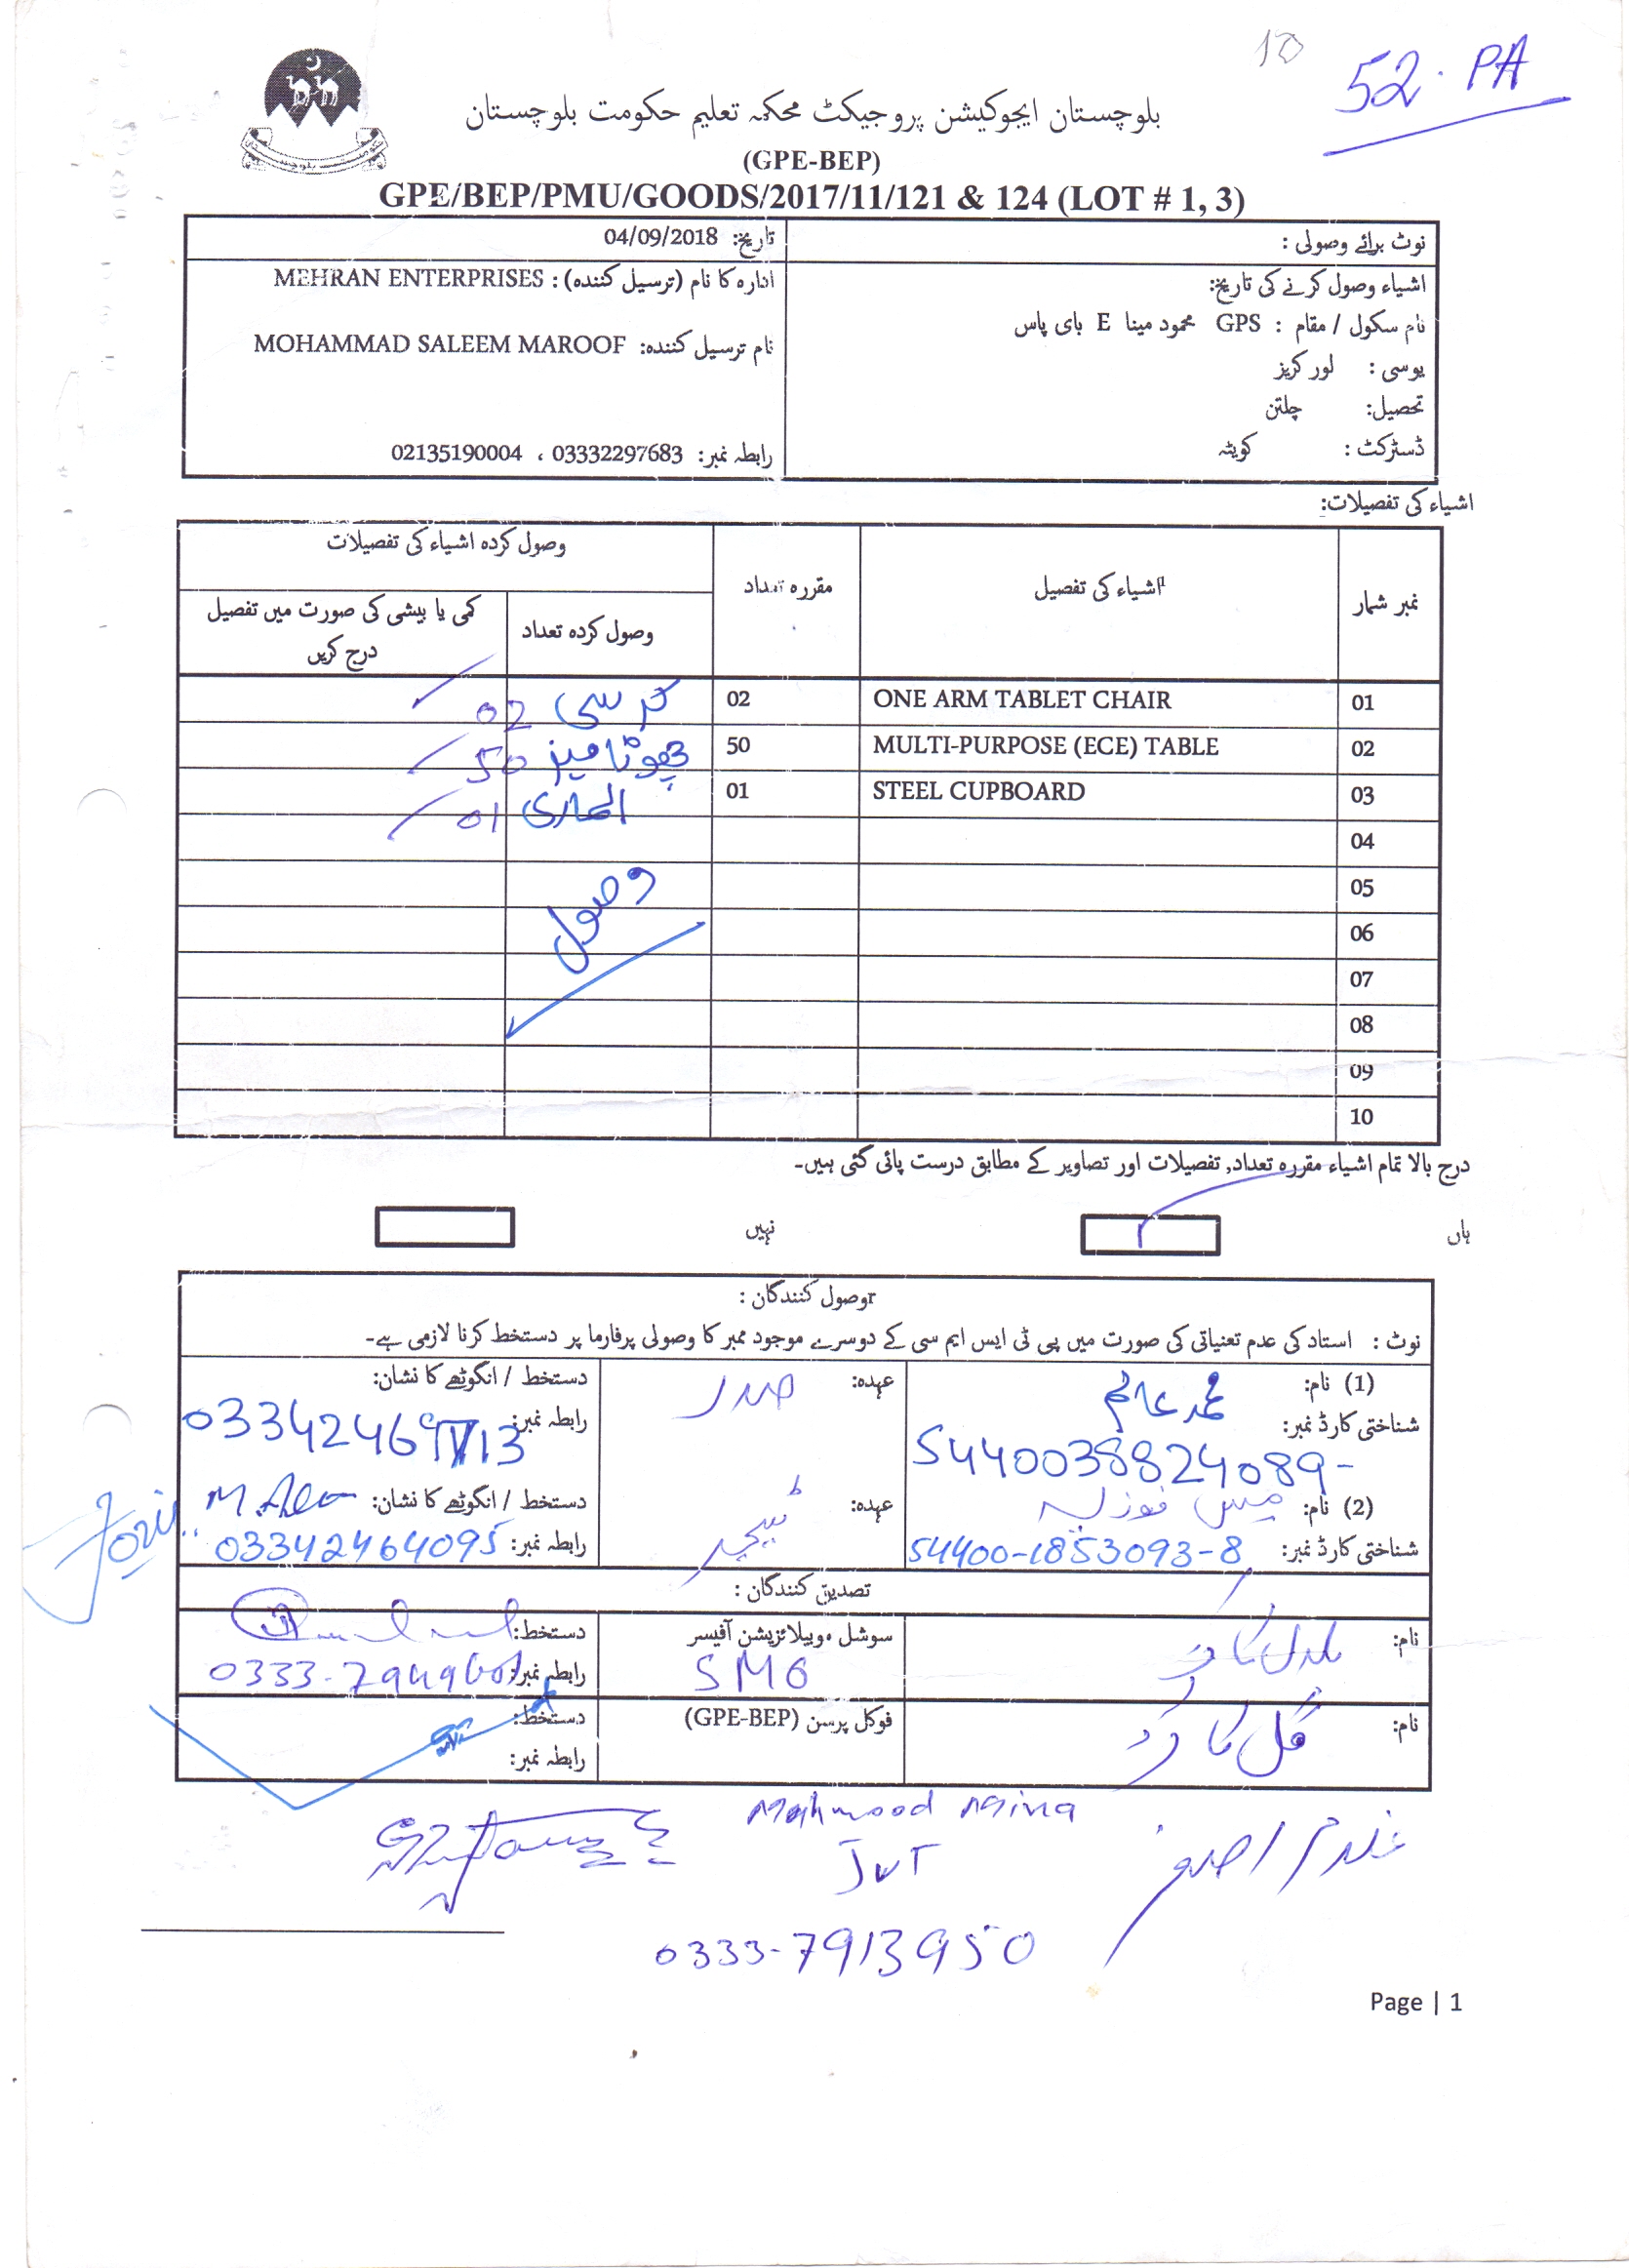 10
52. PA
بلوچستان ایجوکیشن پروجیکٹ محکمہ تعلیم حکومت بلوچستان
(GPE-BEP)
GPE/BEP/PMU/GOODS/2017/11/121 & 124 (LOT # 1, 3)
نوٹ برائے وصولی :
اشیاء وصول کرنے کی تاریخ:
نام سکول / مقام : GPS محمود مینا E بای پاس
یوسی : لور کریز
تحصیل: چلتن
ڈسٹرکٹ : کویٹہ
تاریخ: 04/09/2018
ادارہ کا نام (ترسیل کنندہ) : MEHRAN ENTERPRISES
نام ترسیل کنندہ: MOHAMMAD SALEEM MAROOF
رابطہ نمبر: 03332297683 ، 02135190004
اشیاء کی تفصیلات:
نمبر شمار اشیاء کی تفصیل مقررہ تعداد وصول کردہ اشیاء کی تفصیلات
وصول کردہ تعداد کمی یا بیشی کی صورت میں تفصیل درج کریں
01 ONE ARM TABLET CHAIR 02 کرسی 02
02 MULTI-PURPOSE (ECE) TABLE 50 چھوٹا میز 50
03 STEEL CUPBOARD 01 الماری 01
04
05 وصول
06
07
08
09
10
درج بالا تمام اشیاء مقررہ تعداد, تفصیلات اور تصاویر کے مطابق درست پائی گئی ہیں۔
ہاں نہیں
وصول کنندگان :
نوٹ : استاد کی عدم تعنیاتی کی صورت میں پی ٹی ایس ایم سی کے دوسرے موجود ممبر کا وصولی پرفارما پر دستخط کرنا لازمی ہے۔
(1) نام: محمد عالم عہدہ: صدر دستخط / انگوٹھے کا نشان:
شناختی کارڈ نمبر: 5440038824089- رابطہ نمبر:
(2) نام: میس فوزیہ عہدہ: ٹیچر دستخط / انگوٹھے کا نشان:
شناختی کارڈ نمبر: 54400-1853093-8 رابطہ نمبر: 03342464095
تصدیق کنندگان :
نام: سوشل موبیلائزیشن آفیسر دستخط:
SMO رابطہ نمبر:
نام: فوکل پرسن (GPE-BEP) دستخط:
رابطہ نمبر:
Mahmood Mina
JVT
0333-7913950
Page | 1